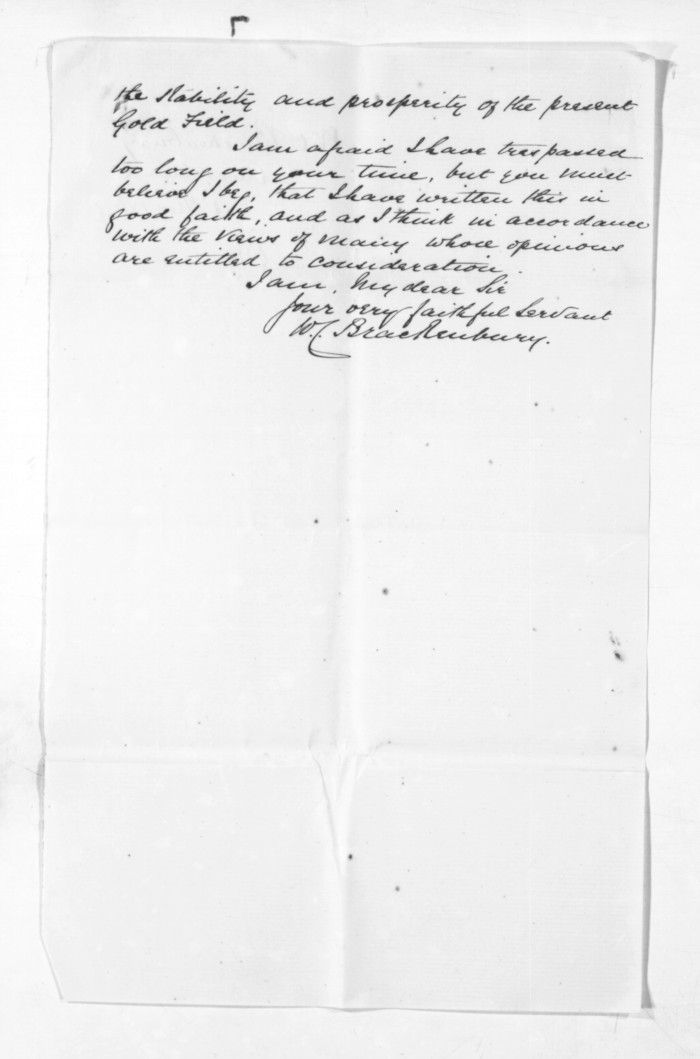 the stability and prosperity of the present
Gold Field.
I am afraid I have trespassed
too long on your time, but you must
believe I beg, that I have written this in
good faith, and as I think in accordance
with the views of many whose opinions
are entitled to consideration.
I am, My dear Sir
Your very faithful Servant
W. C. Brackenbury.